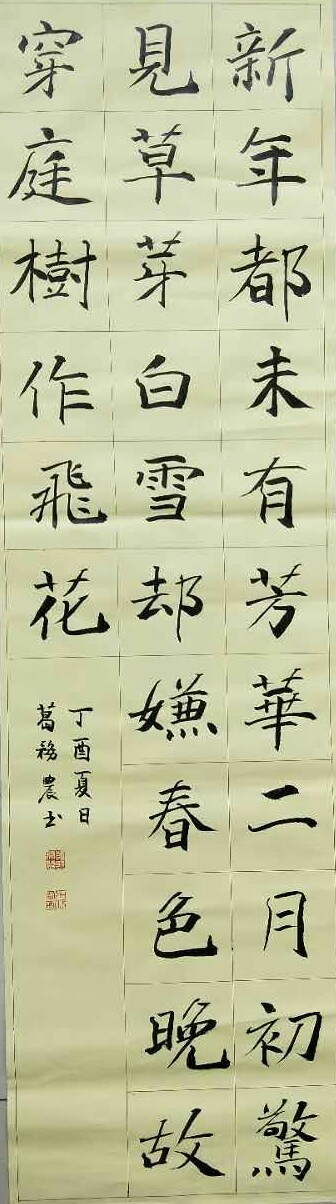 新年都未有芳華二月初驚
見草芽白雪却嫌春色晚故
穿庭樹作飛花
丁酉夏日
葛務農书